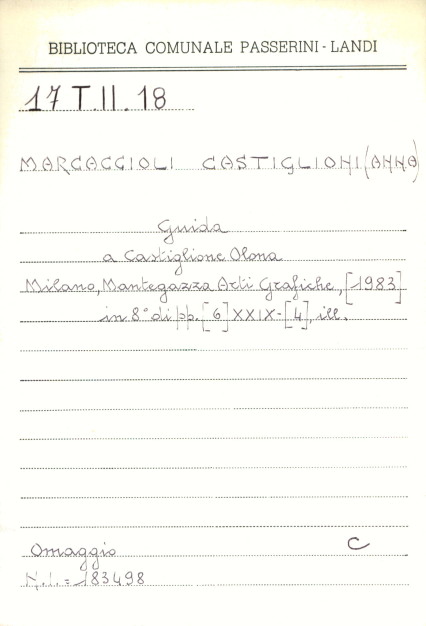 BIBLIOTECA COMUNALE PASSERINI - LANDI
17 T.II.18
MARCACCIOLI CASTIGLIONI (ANNA)
Guida
a Castiglione Olona
Milano, Mantegazza Arti Grafiche, [1983]
in 8° di pp. [6] XXIX-[4], ill.
Omaggio C
N.I. = 183498